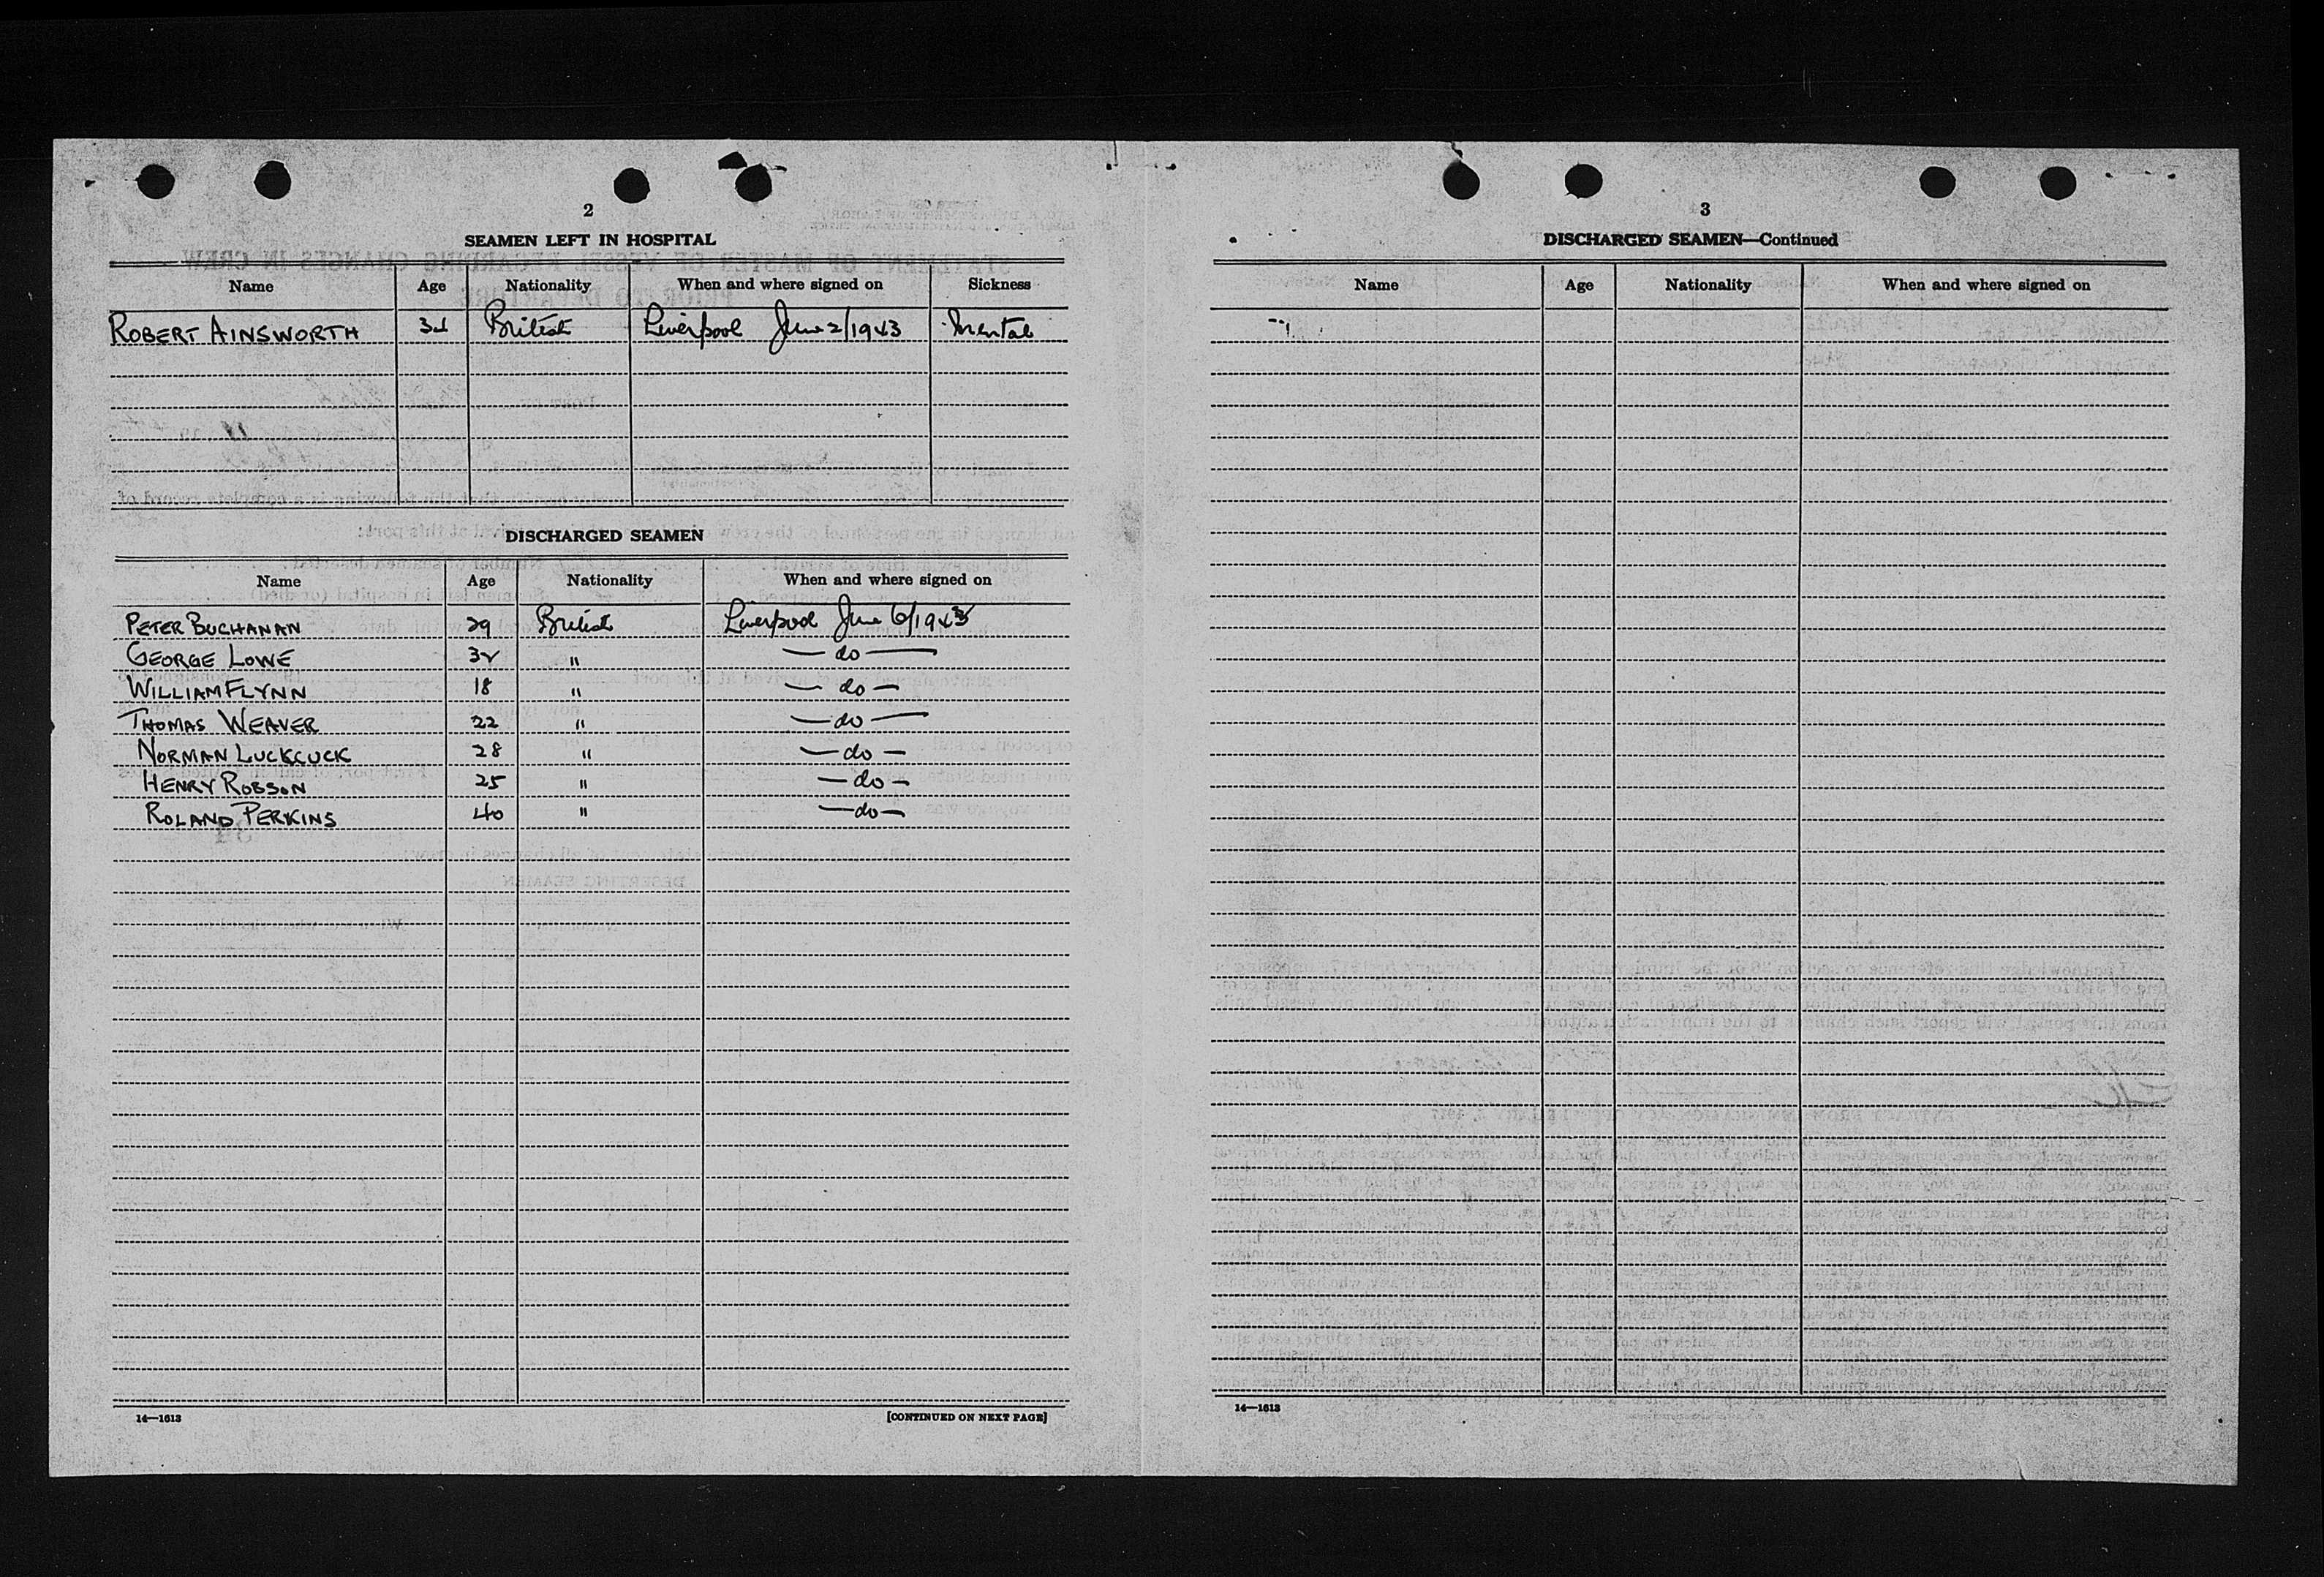 2
SEAMEN LEFT IN HOSPITAL
Name Age Nationality When and where signed on Sickness
ROBERT AINSWORTH 34 British Liverpool June 2/1943 Mental
DISCHARGED SEAMEN
Name Age Nationality When and where signed on
PETER BUCHANAN 29 British Liverpool June 6/1943
GEORGE LOWE 32 " — do —
WILLIAM FLYNN 18 " — do —
THOMAS WEAVER 22 " — do —
NORMAN LUCKCUCK 28 " — do —
HENRY ROBSON 25 " — do —
ROLAND PERKINS 40 " — do —
14—1613
[CONTINUED ON NEXT PAGE]
3
DISCHARGED SEAMEN—Continued
Name Age Nationality When and where signed on
14—1613